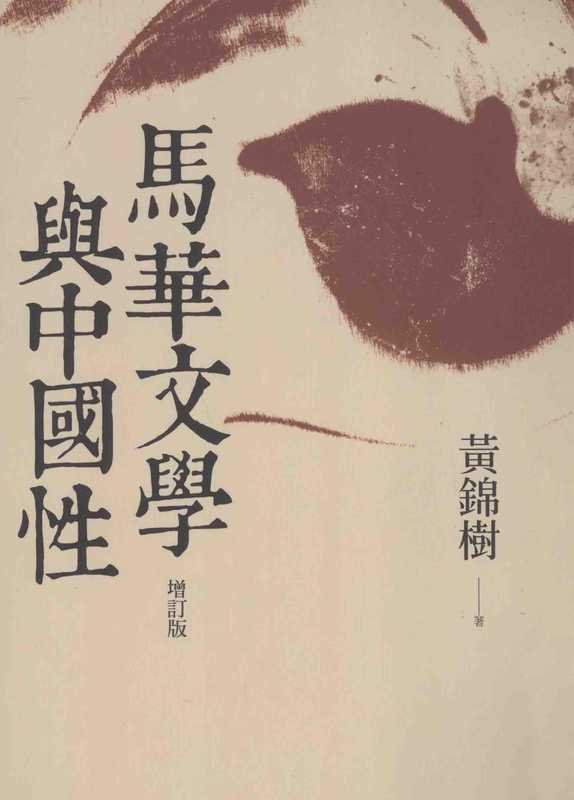 馬華文學
與中國性
增訂版
黃錦樹
著